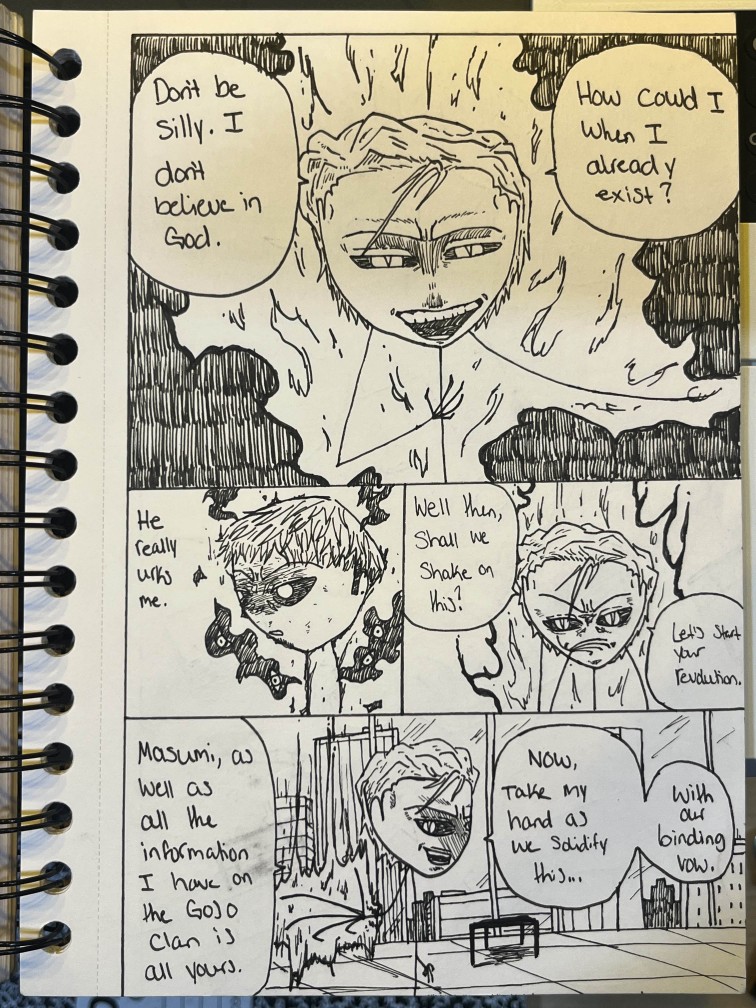 Don't be
silly. I
don't
believe in
God.
How could I
when I
already
exist?
He
really
urks
me.
Well then,
Shall we
Shake on
this?
Let's start
your
revolution.
Masumi, as
well as
all the
information
I have on
the Gojo
Clan is
all yours.
Now,
Take my
hand as
we Solidify
this...
With
our
binding
vow.